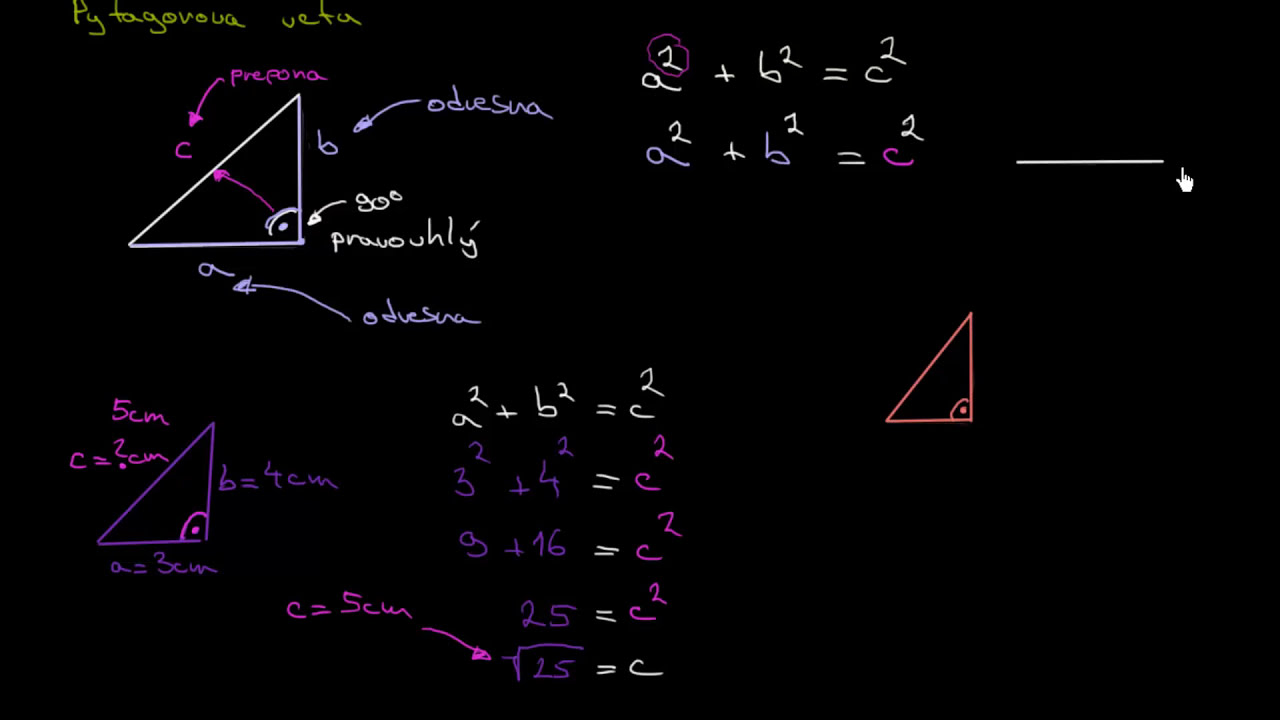 Pytagorova veta
prepona
c
b
odvesna
90°
pravouhlý
a
odvesna
a² + b² = c²
a² + b² = c²
5cm
c = ?cm
b = 4cm
a = 3cm
a² + b² = c²
3² + 4² = c²
9 + 16 = c²
25 = c²
√25 = c
c = 5cm